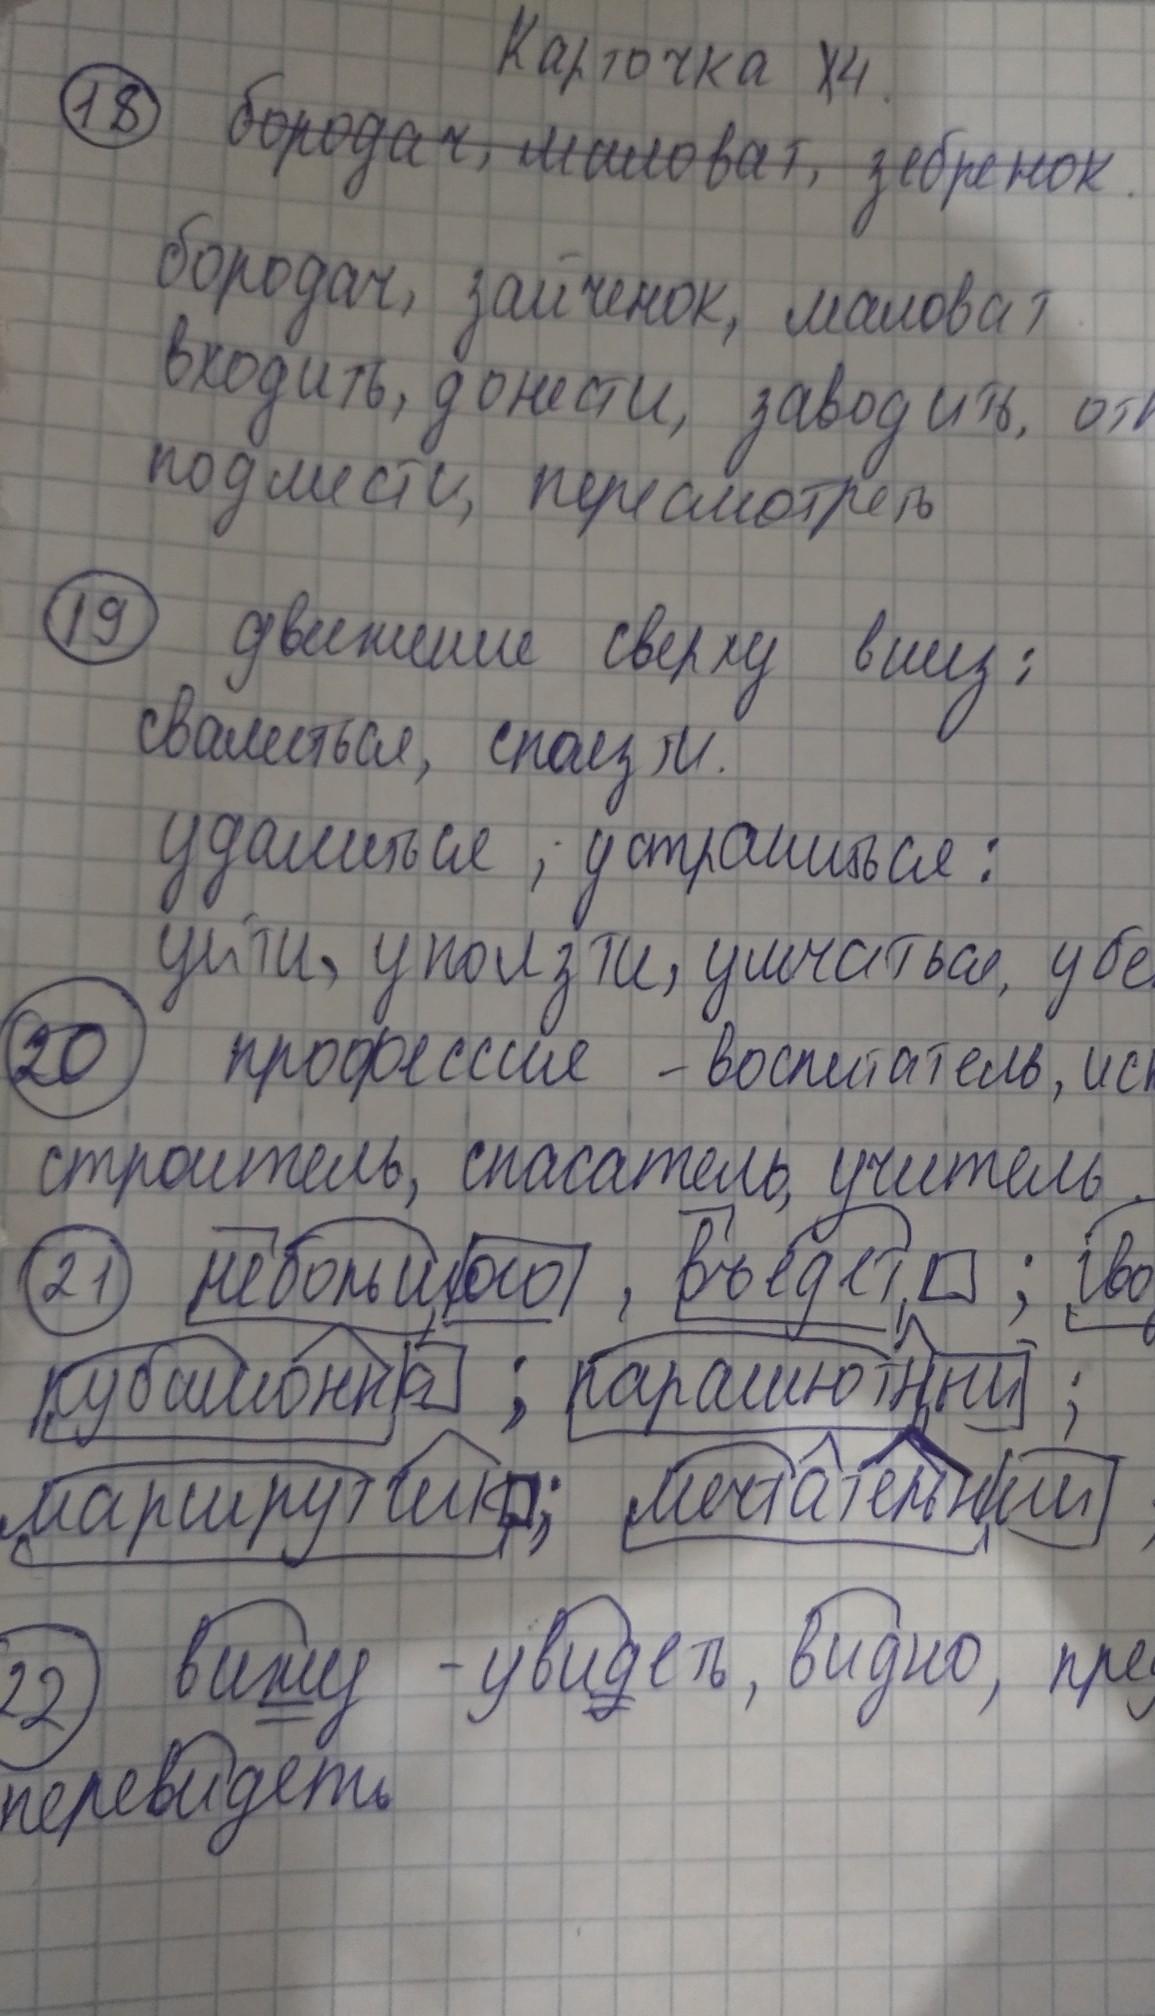 Карточка №4.
18 бородач, маловат, зебренок.
бородач, зайченок, маловат
входить, донести, заводить,
подмести, пересмотреть
19 движение сверху вниз:
свалиться, сползти.
удалиться, устрашиться:
уйти, уползти, умчаться, убе
20 профессия - воспитатель, исп
строитель, спасатель, учитель.
21 небольшого, въедет; гво
кубанонка; парашютный;
маршрутчик; мечтательный,
22 вижу - увидеть, видно, пред
перевидеть